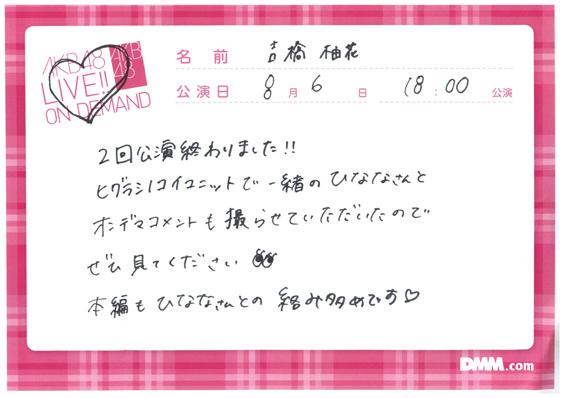 AKB48
LIVE!!
ON DEMAND
AKB
48
名前 吉橋 柚花
公演日 8月6日 18:00公演
2回公演終わりました!!
ヒグラシノコイユニットで一緒のひななさんと
オンデマコメントも撮らせていただいたので
ぜひ見てください
本編もひななさんとの絡み多めです♡
DMM.com